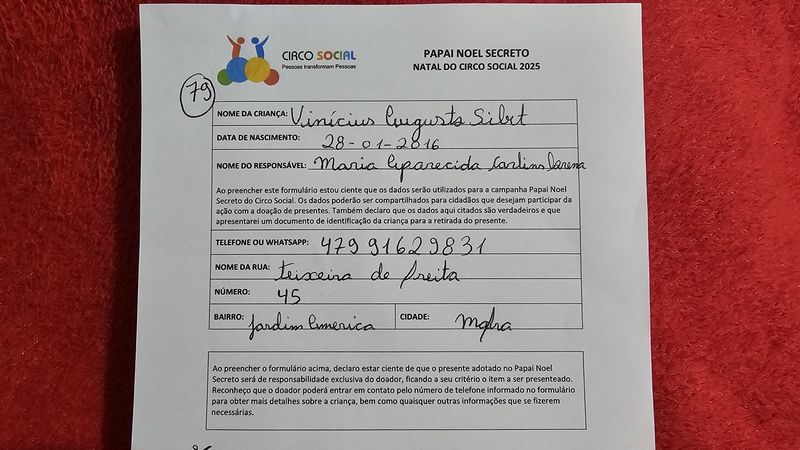 CIRCO SOCIAL
Pessoas transformam Pessoas
PAPAI NOEL SECRETO
NATAL DO CIRCO SOCIAL 2025
79
NOME DA CRIANÇA: Vinícius Augusto Silrt
DATA DE NASCIMENTO: 28-01-2016
NOME DO RESPONSÁVEL: Maria Aparecida Carlins
Ao preencher este formulário estou ciente que os dados serão utilizados para a campanha Papai Noel
Secreto do Circo Social. Os dados poderão ser compartilhados para cidadãos que desejam participar da
ação com a doação de presentes. Também declaro que os dados aqui citados são verdadeiros e que
apresentarei um documento de identificação da criança para a retirada do presente.
TELEFONE OU WHATSAPP: 47991629831
NOME DA RUA: teixeira de freita
NÚMERO: 45
BAIRRO: Jardim America CIDADE: Mafra
Ao preencher o formulário acima, declaro estar ciente de que o presente adotado no Papai Noel
Secreto será de responsabilidade exclusiva do doador, ficando a seu critério o item a ser presenteado.
Reconheço que o doador poderá entrar em contato pelo número de telefone informado no formulário
para obter mais detalhes sobre a criança, bem como quaisquer outras informações que se fizerem
necessárias.